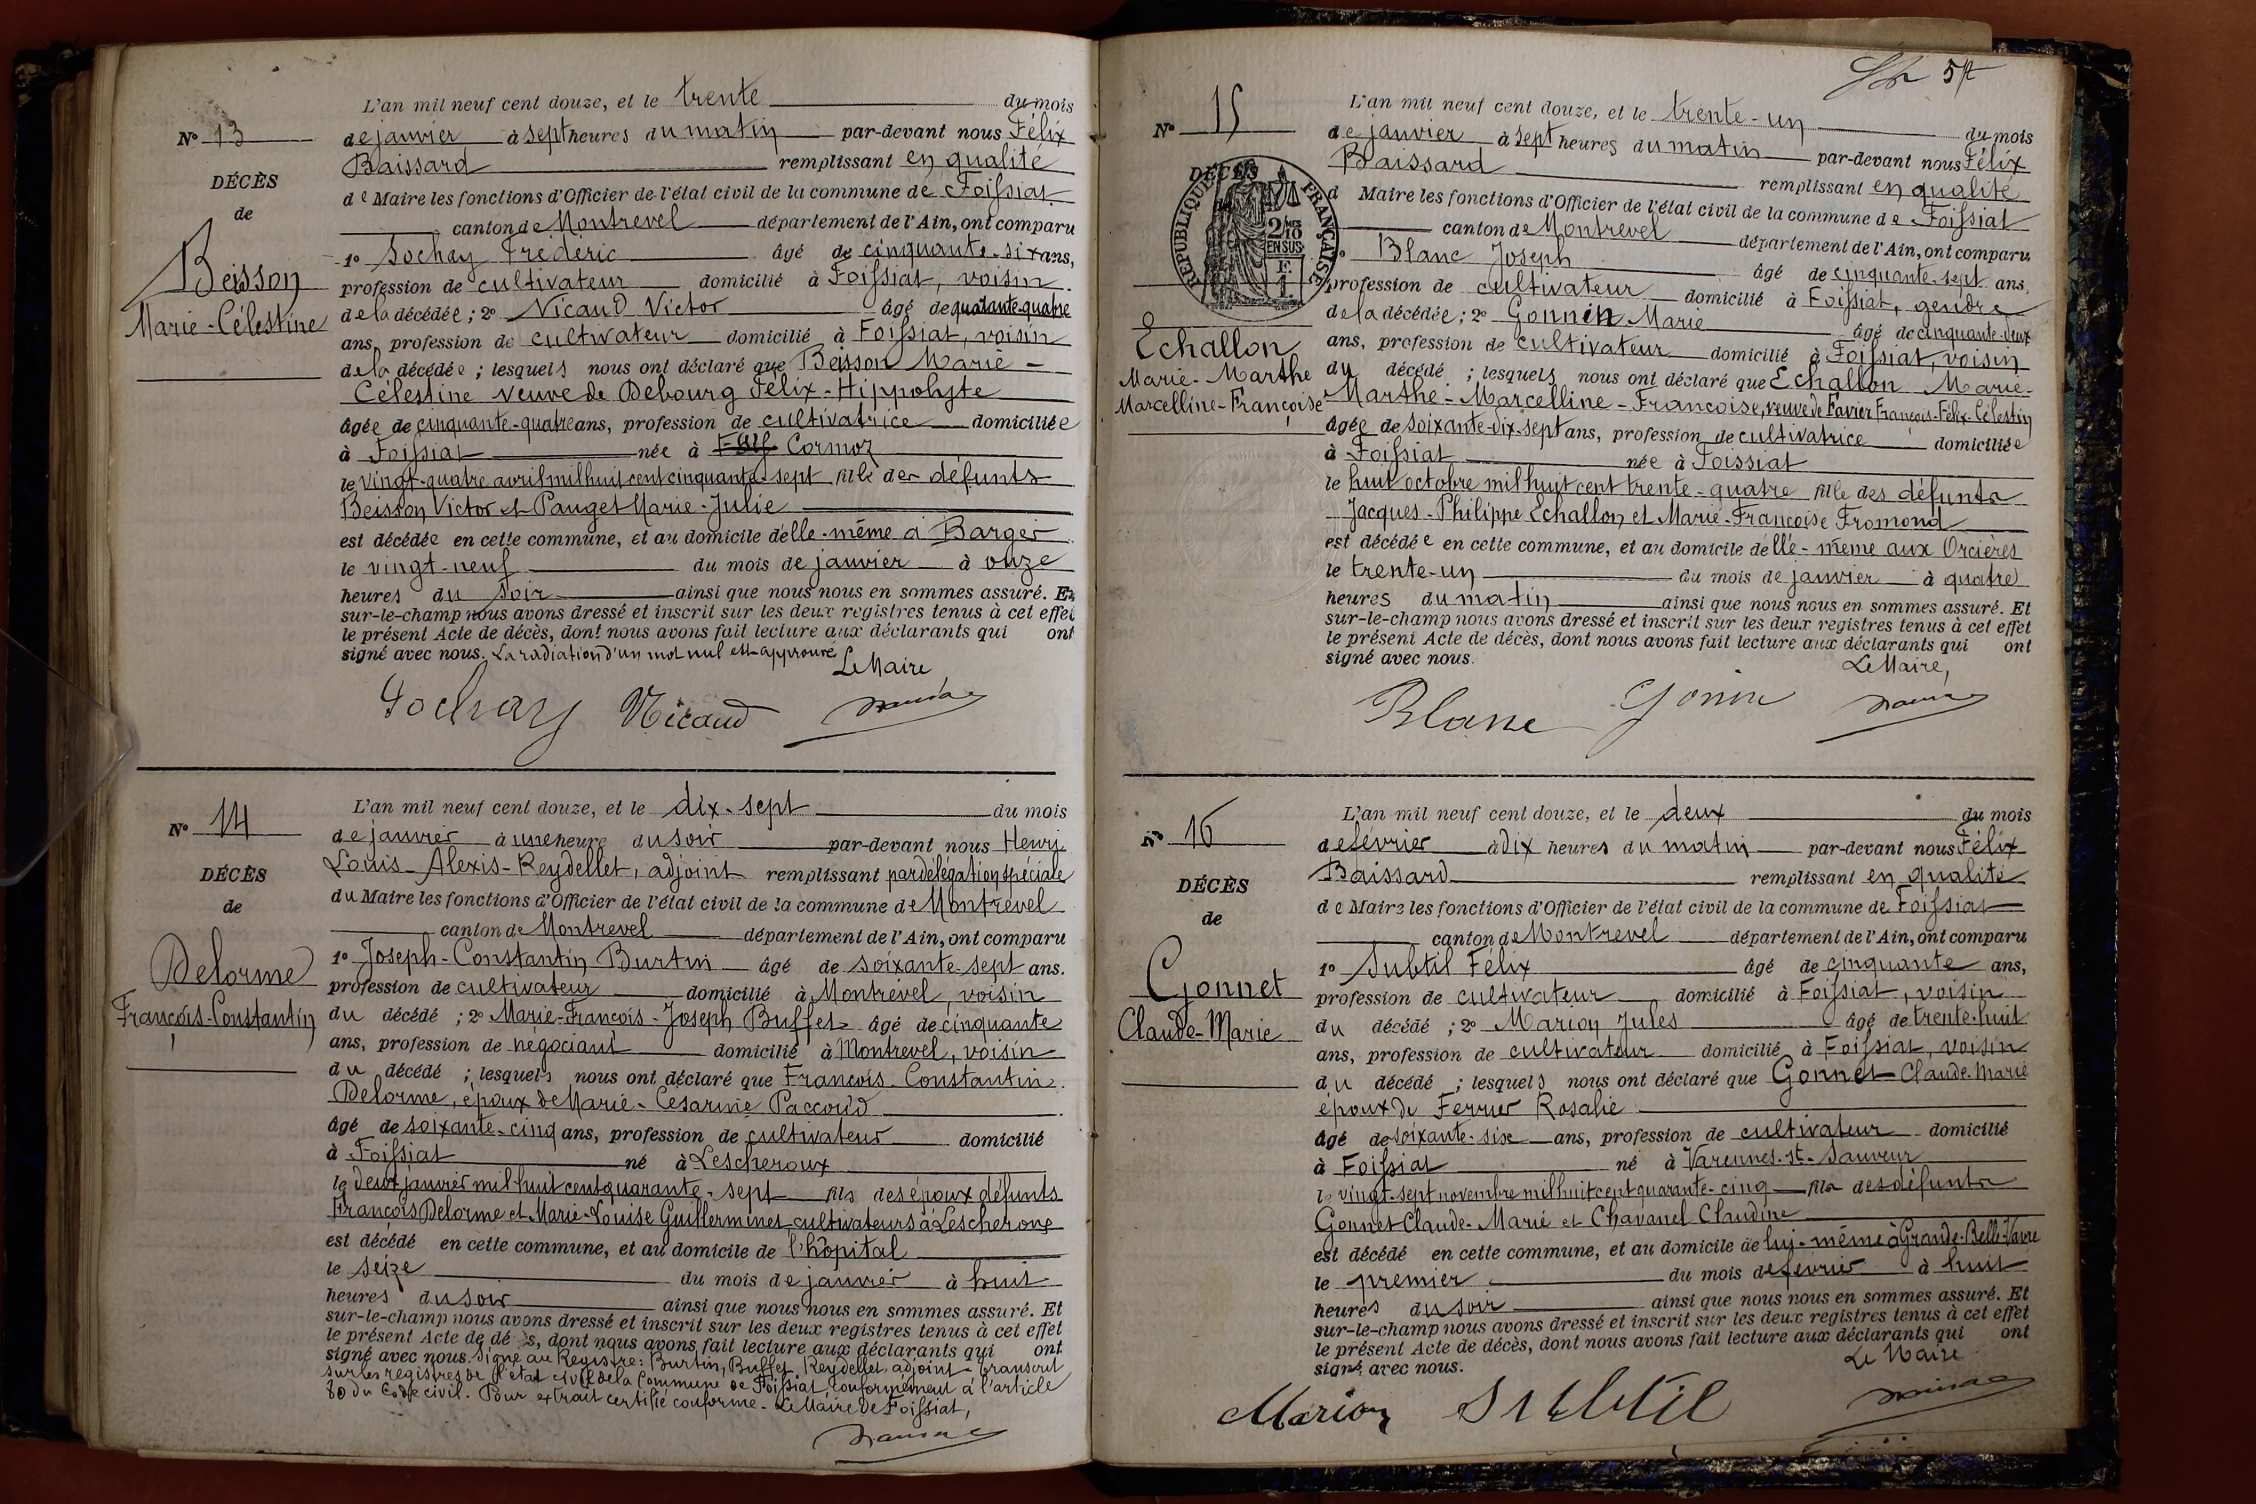 L'an mil neuf cent douze, et le trente du mois
N° 13
de janvier à sept heures du matin par-devant nous Félix
Baissard remplissant en qualité
DÉCÈS
de Maire les fonctions d'Officier de l'état civil de la commune de Foissiat
de
canton de Montrevel département de l'Ain, ont comparu
1° Sochay Frédéric âgé de cinquante-six ans,
Beisson
profession de cultivateur domicilié à Foissiat, voisin
Marie-Célestine
de la décédée ; 2° Nicaud Victor âgé de quarante-quatre
ans, profession de cultivateur domicilié à Foissiat, voisin
de la décédée ; lesquels nous ont déclaré que Beisson Marie-
Célestine veuve de Debourg Félix-Hippolyte
âgée de cinquante-quatre ans, profession de cultivatrice domiciliée
à Foissiat née à Cormoz
le vingt-quatre avril mil huit cent cinquante-sept fille des défunts
Beisson Victor et Pauget Marie-Julie
est décédée en cette commune, et au domicile d'elle-même à Barger
le vingt-neuf du mois de janvier à onze
heures du soir ainsi que nous nous en sommes assuré. Et
sur-le-champ nous avons dressé et inscrit sur les deux registres tenus à cet effet
le présent Acte de décès, dont nous avons fait lecture aux déclarants qui ont
signé avec nous. La radiation d'un mot nul est approuvé
Le Maire
Sochay Nicaud
L'an mil neuf cent douze, et le dix-sept du mois
N° 14
de janvier à une heure du soir par-devant nous Henri
DÉCÈS
Louis-Alexis-Reydellet, adjoint remplissant par délégation spéciale
de
du Maire les fonctions d'Officier de l'état civil de la commune de Montrevel
canton de Montrevel département de l'Ain, ont comparu
Delorme
1° Joseph-Constantin Burtin âgé de soixante-sept ans.
François-Constantin
profession de cultivateur domicilié à Montrevel, voisin
du décédé ; 2° Marie-François-Joseph Buffet âgé de cinquante
ans, profession de négociant domicilié à Montrevel, voisin
du décédé ; lesquels nous ont déclaré que François-Constantin
Delorme, époux de Marie-Césarine Paccoud
âgé de soixante-cinq ans, profession de cultivateur domicilié
à Foissiat né à Lescheroux
le deux janvier mil huit cent quarante-sept fils des époux défunts
François Delorme et Marie-Louise Guillerminet cultivateurs à Lescheroux
est décédé en cette commune, et au domicile de l'hôpital
le seize du mois de janvier à huit
heures du soir ainsi que nous nous en sommes assuré. Et
sur-le-champ nous avons dressé et inscrit sur les deux registres tenus à cet effet
le présent Acte de dé s, dont nous avons fait lecture aux déclarants qui ont
signé avec nous. Signé au Registre: Burtin, Buffet, Reydellet adjoint - transcrit
sur les registres de l'état civil de la Commune de Foissiat, conformément à l'article
80 du Code civil. Pour extrait certifié conforme - Le Maire de Foissiat,
L'an mil neuf cent douze, et le trente-un du mois
N° 15
de janvier à sept heures du matin par-devant nous Félix
Baissard remplissant en qualité
DÉCÈS
RÉPUBLIQUE FRANÇAISE
2/10 EN SUS
d Maire les fonctions d'Officier de l'état civil de la commune de Foissiat
canton de Montrevel département de l'Ain, ont comparu
Blanc Joseph âgé de cinquante-sept ans.
profession de cultivateur domicilié à Foissiat, gendre
de la décédée ; 2° Gonnin Marie âgé de cinquante-deux
Echallon
ans, profession de cultivateur domicilié à Foissiat, voisin
Marie-Marthe
du décédé ; lesquels nous ont déclaré que Echallon Marie-
Marcelline-Françoise
Marthe-Marcelline-Francoise, veuve de Favier François-Félix-Célestin
âgée de soixante-dix-sept ans, profession de cultivatrice domiciliée
à Foissiat née à Foissiat
le huit octobre mil huit cent trente-quatre fille des défunts
Jacques-Philippe Echallon et Marie-Francoise Fromond
est décédée en cette commune, et au domicile d'elle-même aux Orcières
le trente-un du mois de janvier à quatre
heures du matin ainsi que nous nous en sommes assuré. Et
sur-le-champ nous avons dressé et inscrit sur les deux registres tenus à cet effet
le présent Acte de décès, dont nous avons fait lecture aux déclarants qui ont
signé avec nous.
Le Maire,
Blanc Gonin
L'an mil neuf cent douze, et le deux du mois
N° 16
de février à dix heures du matin par-devant nous Félix
Baissard remplissant en qualité
DÉCÈS
de Maire les fonctions d'Officier de l'état civil de la commune de Foissiat
de
canton de Montrevel département de l'Ain, ont comparu
1° Subtil Félix âgé de cinquante ans,
Gonnet
profession de cultivateur domicilié à Foissiat, voisin
Claude-Marie
du décédé ; 2° Marion Jules âgé de trente-huit
ans, profession de cultivateur domicilié à Foissiat, voisin
du décédé ; lesquels nous ont déclaré que Gonnet Claude-Marie
époux de Ferrier Rosalie
âgé de soixante-six ans, profession de cultivateur domicilié
à Foissiat né à Varennes-St-Sauveur
le vingt-sept novembre mil huit cent quarante-cinq fils des défunts
Gonnet Claude-Marie et Chavanel Claudine
est décédé en cette commune, et au domicile de lui-même à Grande-Belle-Vavre
le premier du mois de février à huit
heures du soir ainsi que nous nous en sommes assuré. Et
sur-le-champ nous avons dressé et inscrit sur les deux registres tenus à cet effet
le présent Acte de décès, dont nous avons fait lecture aux déclarants qui ont
signé avec nous.
Le Maire
Marion Subtil